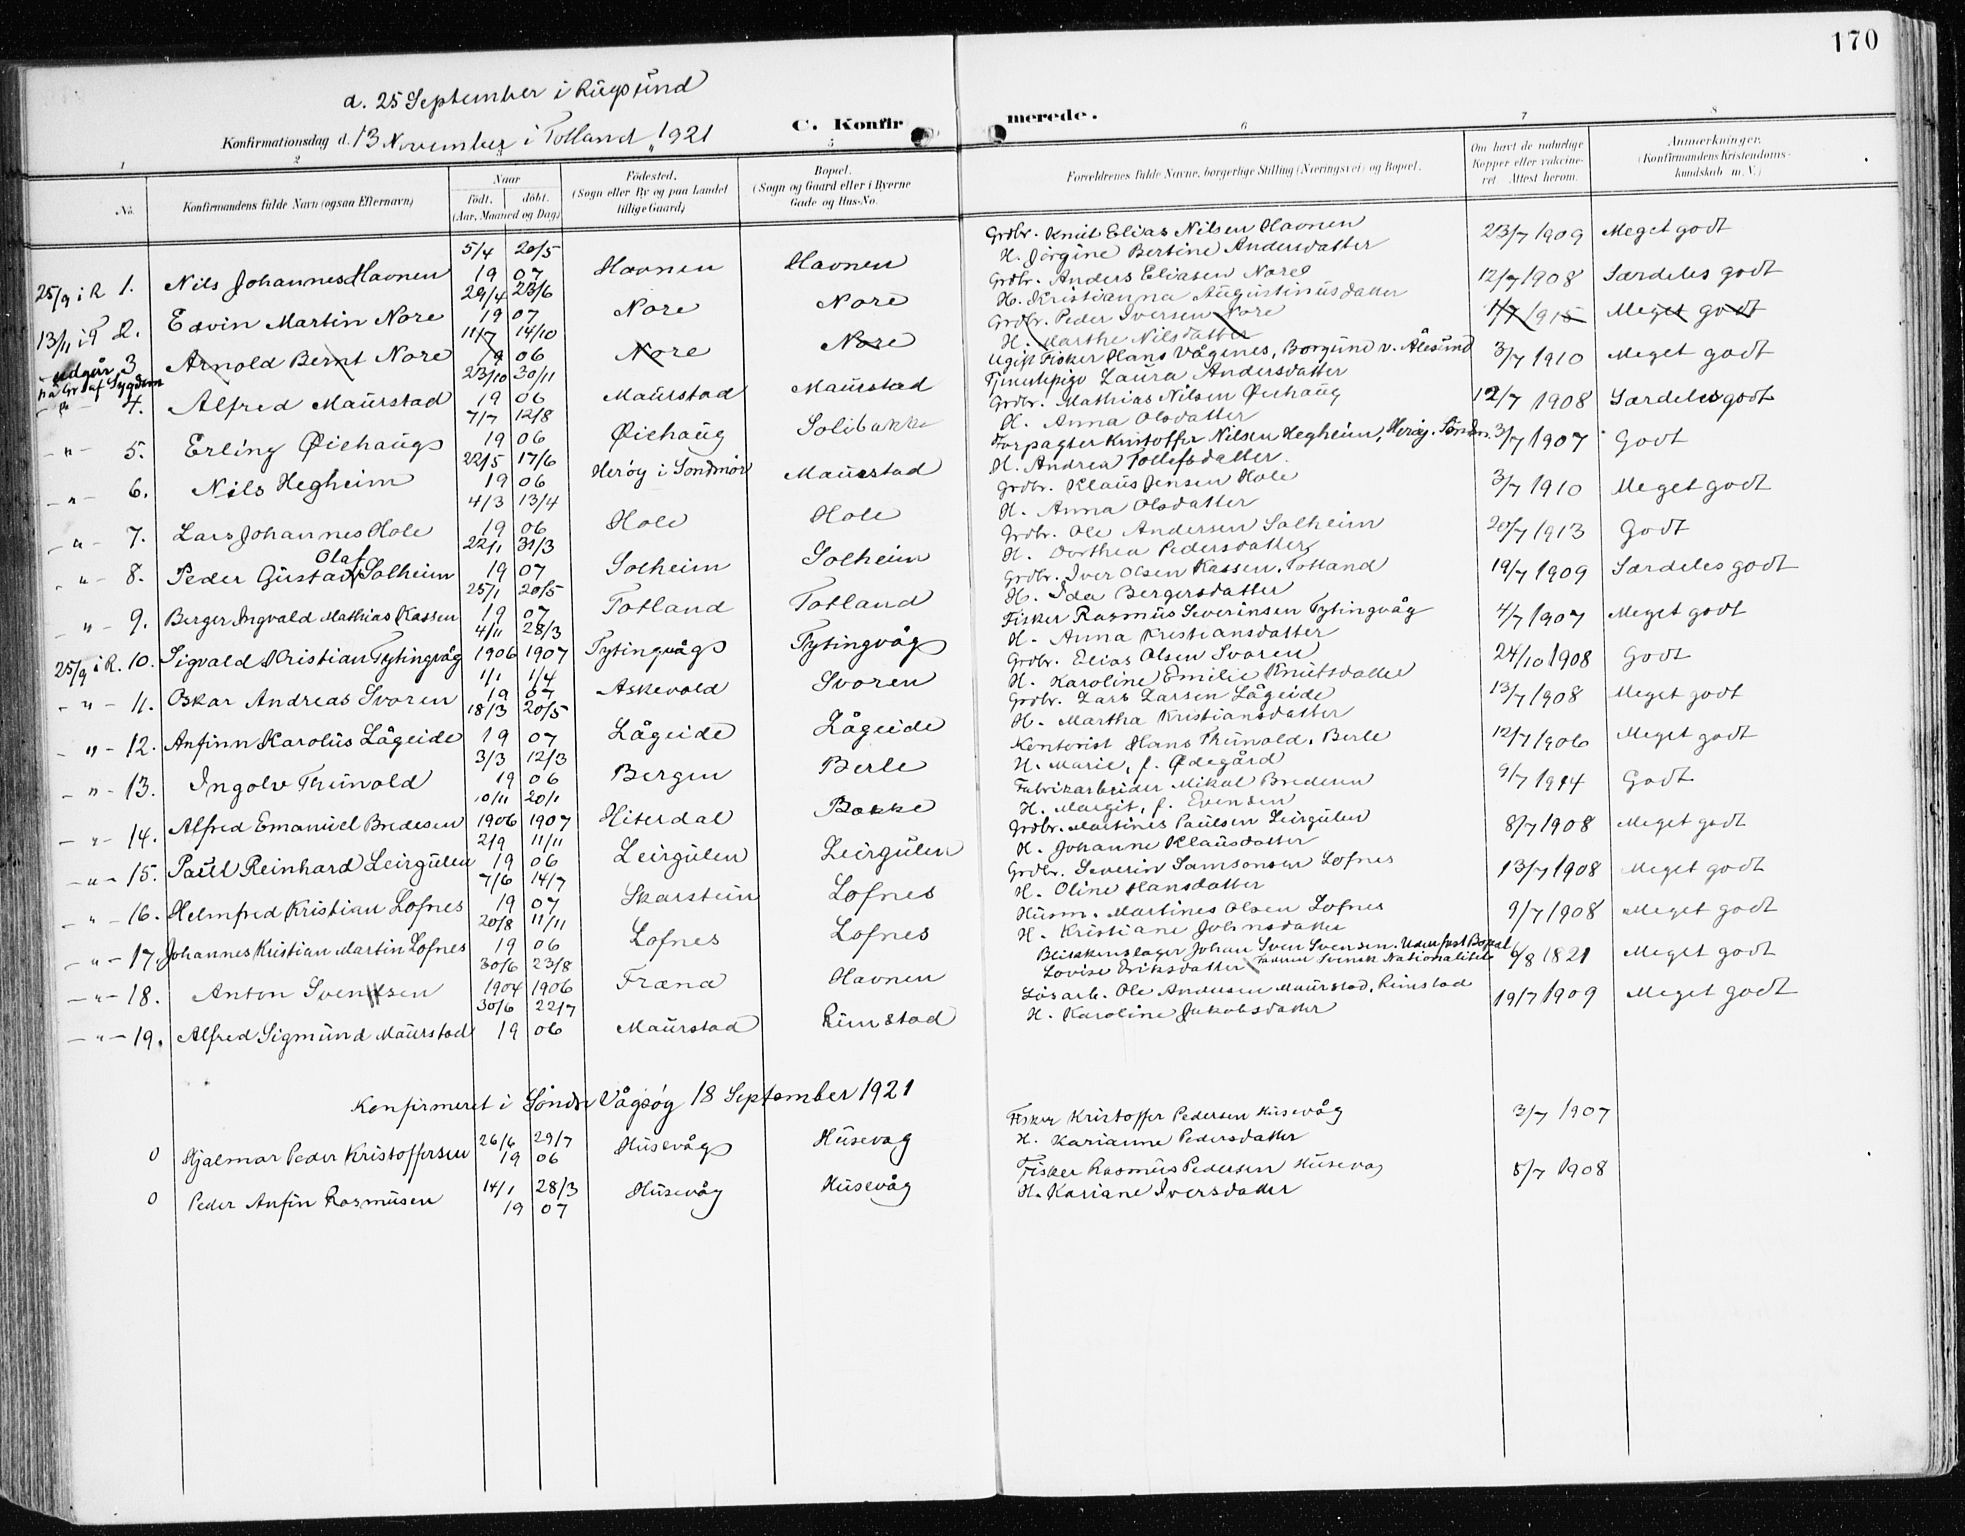 170
d. 25 September i Rugsund
Konfirmationsdag d. 13 November i Totland 1921
C. Konfirmerede.
1 2 5 6 7 8
No. Konfirmandens fulde Navn (ogsaa Efternavn) Naar født. døbt. (Aar, Maaned og Dag) Fødested. (Sogn eller By og paa Landet tillige Gaard) Bopæl. (Sogn og Gaard eller i Byerne Gade og Hus-No. Forældrenes fulde Navne, borgerlige Stilling (Næringsvei) og Bopæl. Om havt de naturlige Kopper eller vakcineret. Attest herom. Anmerkninger. (Konfirmandens Kristendomskundskab m. V.)
25/9 i R 1. Nils Johannes Havnen 5/4 20/5 19 07 Havnen Havnen Grdbr. Knut Elias Nilsen Havnen
H. Jørgine Bertine Andersdatter 23/7 1909 Meget godt
13/11 i T 2. Edvin Martin Nore 29/4 23/6 19 07 Nore Nore Grdbr. Anders Eliasen Nore
H. Kristianna Augustinusdatter 12/7 1908 Særdeles godt
udgår på Gr. af Sygdom 3 Arnold Bernt Nore 11/7 14/10 19 06 Nore Nore Grdbr. Peder Iversen Nore
H. Marthe Nilsdatter 1/7 1915 Meget godt
- " - 4. Alfred Maurstad 23/10 30/11 19 06 Maurstad Maurstad Ugift Fisker Hans Vågenes, Borgund v. Ålesund
Laura Andersdatter 3/7 1910 Meget godt
- " - 5. Erling Øiehaug 7/7 12/8 19 06 Øiehaug Solibakke Grdbr. Mathias Nilsen Øiehaug
H. Anna Olsdatter 12/7 1908 Særdeles godt
- " - 6. Nils Hegheim 22/5 17/6 19 06 Herøy i Søndmør Maurstad Forpagter Kristoffer Nilsen Hegheim, Herøy, Søndm.
H. Andrea Tollefsdatter. 3/7 1907 Godt
- " - 7. Lars Johannes Hole 4/3 13/4 19 06 Hole Hole Grdbr. Klaus Jensen Hole
H. Anna Olsdatter 3/7 1910 Meget godt
- " - 8. Peder Gustav Olaf Solheim 22/1 31/3 19 07 Solheim Solheim Grdbr. Ole Andersen Solheim
H. Dorthea Pedersdatter 20/7 1913 Godt
- " - 9. Berger Ingvald Mathias Kassen 25/1 20/5 19 07 Totland Totland Grdbr. Iver Olsen Kassen, Totland
H. Ida Bergersdatter 19/7 1909 Særdeles godt
25/9 i R. 10. Sigvald Kristian Tytingvåg 4/11 28/3 1906 1907 Tytingvåg Tytingvåg Fisker Rasmus Severinsen Tytingvåg
H. Anna Kristiansdatter 4/7 1907 Meget godt
- " - 11. Oskar Andreas Svoren 1/1 1/4 19 07 Askevold Svoren Grdbr. Elias Olsen Svoren
H. Karoline Emilie Knutsdatter 24/10 1908 Godt
- " - 12. Anfinn Karolus Lågeide 18/3 20/5 19 07 Lågeide Lågeide Grdbr. Lars Larsen Lågeide
H. Martha Kristiansdatter 13/7 1908 Meget godt
- " - 13. Ingolv Thunold 3/3 12/3 19 06 Bergen Berle Kontorist Hans Thunold, Berle
H. Marie, f. Ødegård 12/7 1906 Meget godt
- " - 14. Alfred Emanuel Bredesen 10/11 20/1 1906 1907 Hiterdal Bakke Fabrikarbeider Mikal Bredesen
H. Margit, f. Evensen 9/7 1914 Godt
- " - 15. Paul Reinhard Leirgulen 2/9 11/11 19 06 Leirgulen Leirgulen Grdbr. Martines Paulsen Leirgulen
H. Johanne Klausdatter 8/7 1908 Meget godt
- " - 16. Helmfred Kristian Lofnes 7/6 14/7 19 07 Skarstein Lofnes Grdbr. Severin Samsonsen Lofnes
H. Oline Hansdatter 13/7 1908 Meget godt
- " - 17. Johannes Kristian Martin Lofnes 20/8 11/11 19 06 Lofnes Lofnes Husm. Martines Olsen Lofnes
H. Kristiane Johnsdatter 9/7 1908 Meget godt
- " - 18. Anton Svensen 30/6 23/8 1904 1906 Fræna Havnen Blikkenslager Johan Sven Svensen. Uden fast Bopæl
Lovise Eriksdatter Svensk Nationalitet 6/8 1821 Meget godt
- " - 19. Alfred Sigmund Maurstad 30/6 22/7 19 06 Maurstad Rimstad Løsarb. Ole Andersen Maurstad, Rimstad
H. Karoline Jakobsdatter 19/7 1909 Meget godt
Konfirmeret i Søndre Vågsøy 18 September 1921
0 Hjalmar Peder Kristoffersen 26/6 29/7 19 06 Husevåg Husevåg Fisker Kristoffer Pedersen Husevåg
H. Karianne Pedersdatter 3/7 1907
0 Peder Anfin Rasmusen 14/1 28/3 19 07 Husevåg Husevåg Fisker Rasmus Pedersen Husevåg
H. Kariane Iversdatter 5/7 1908